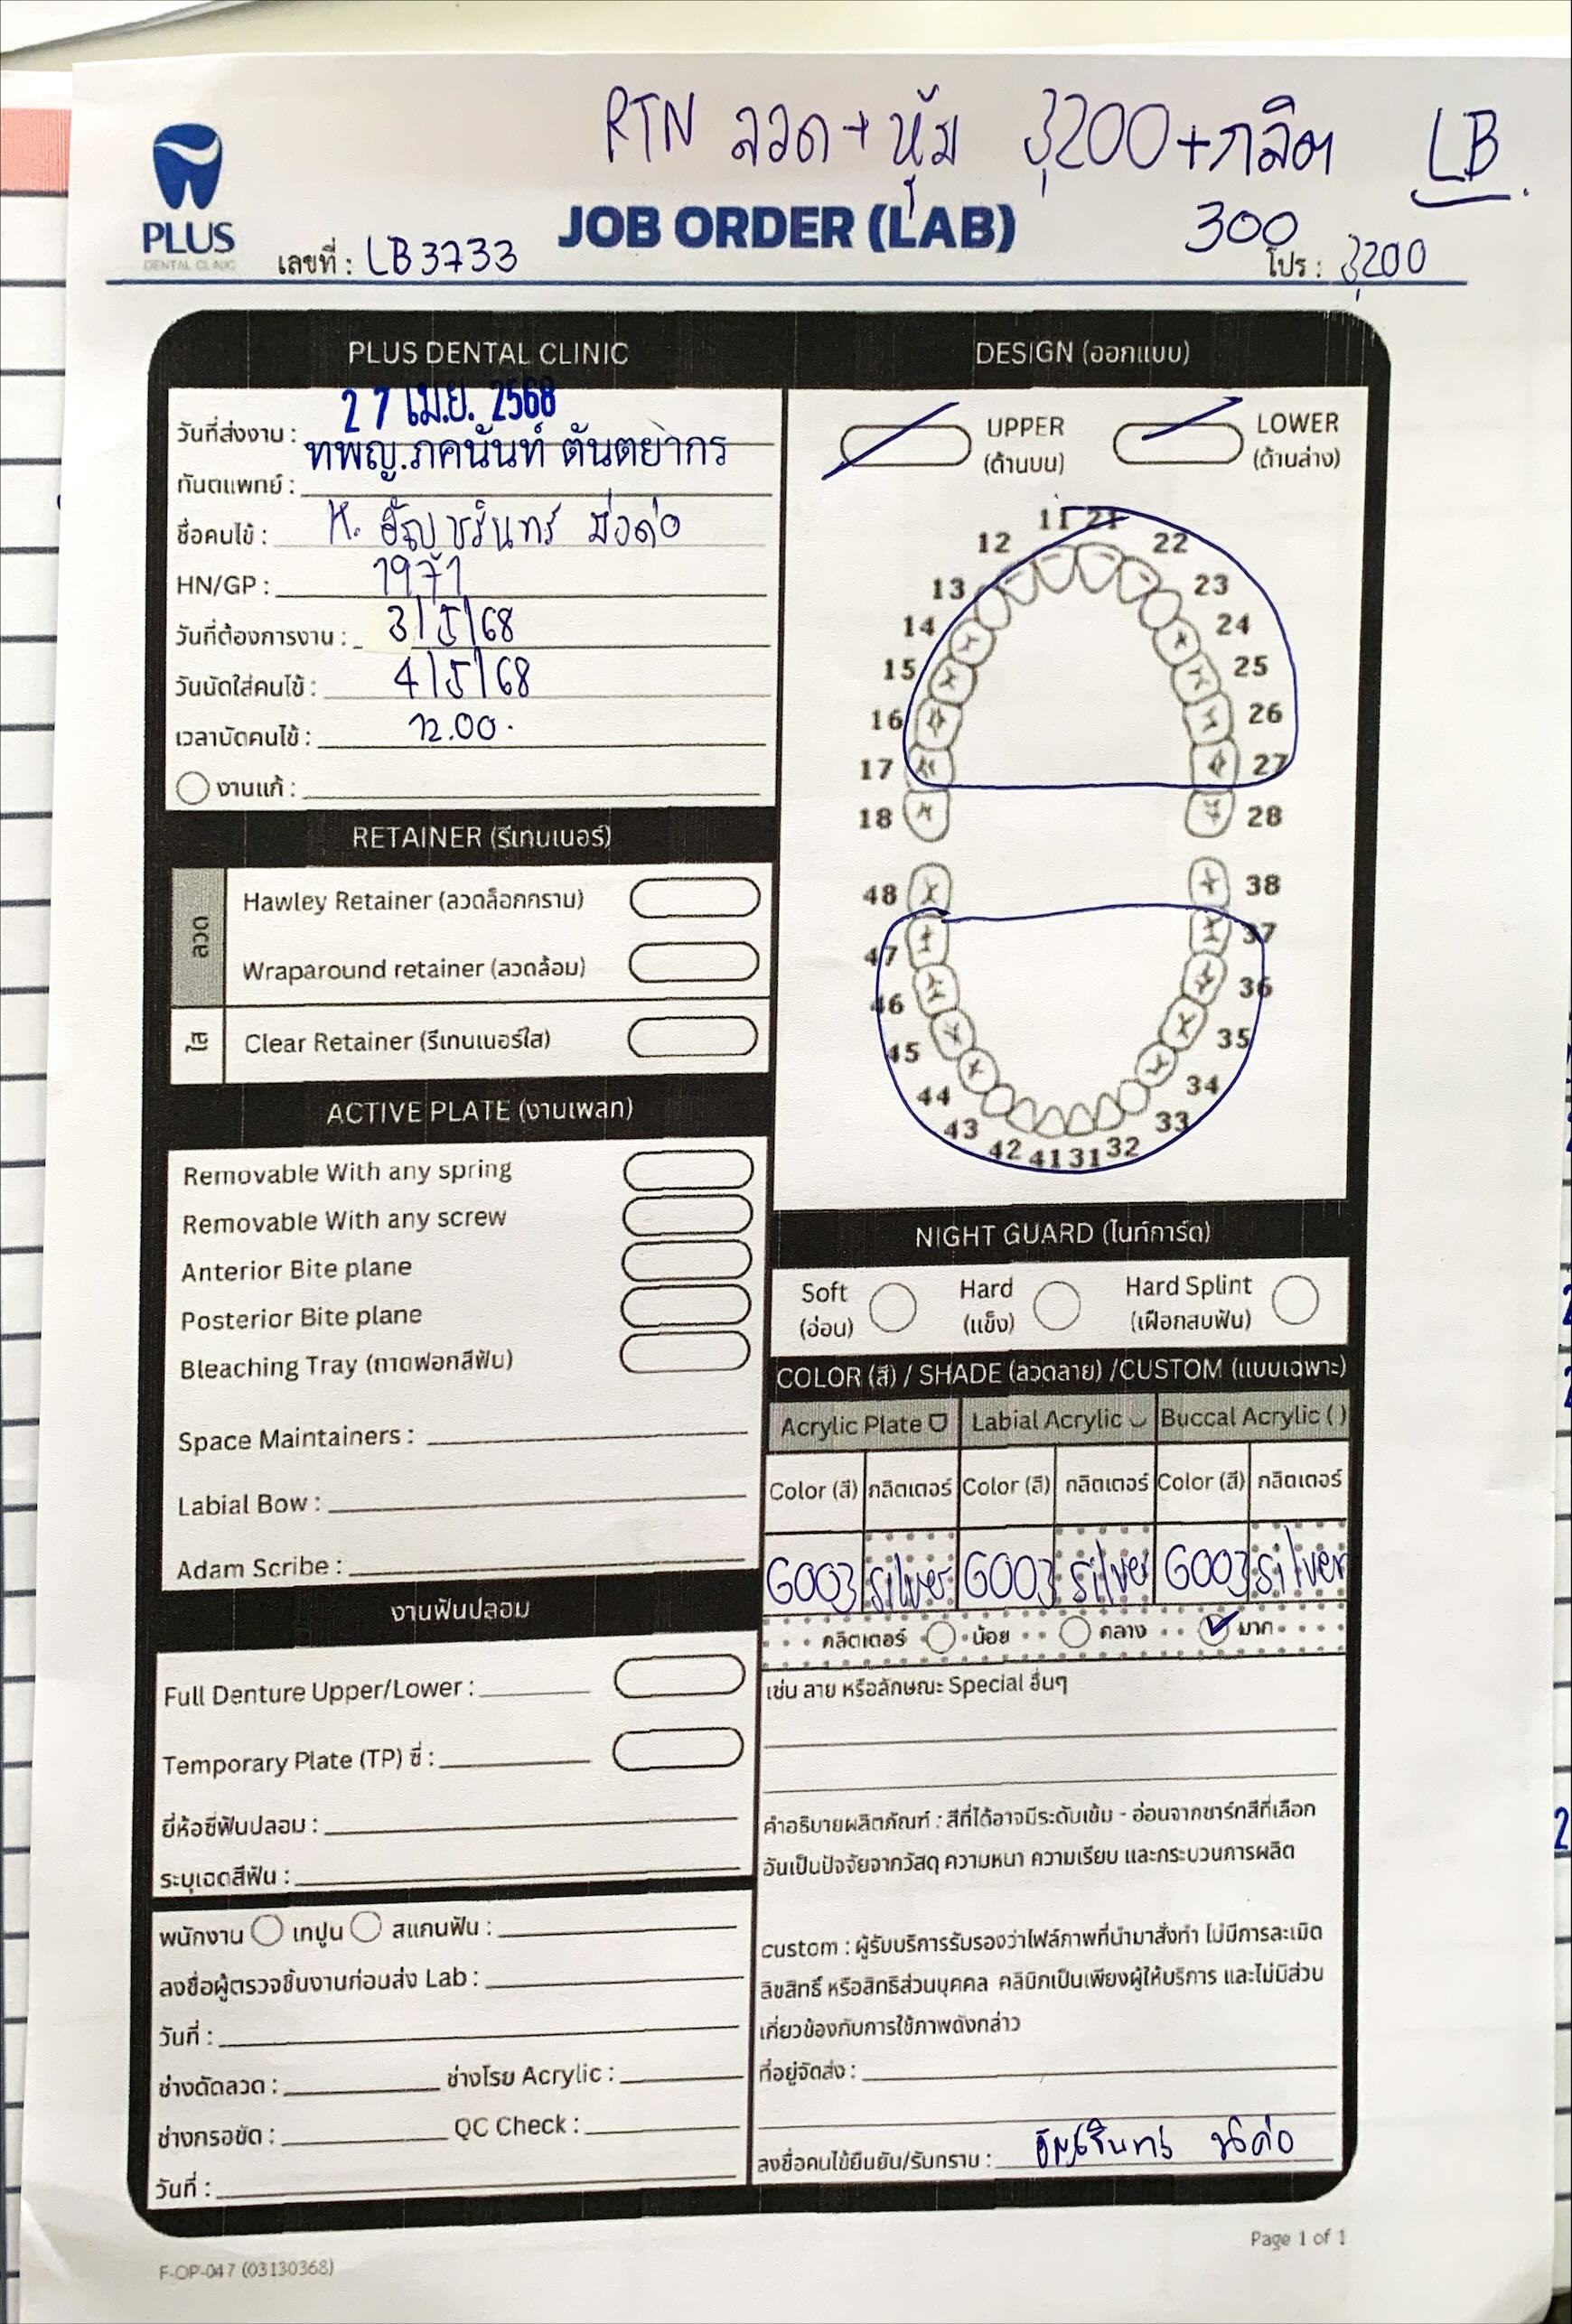 RTN ลวด + หุ้ม 3,200 + กลิต LB
300
PLUS
DENTAL CLINIC
JOB ORDER (LAB)
เลขที่ : LB3733
โปร : 3,200
PLUS DENTAL CLINIC
วันที่ส่งงาน : 27 เม.ย. 2568
ทันตแพทย์ : ทพญ.ภคนันท์ ตันตยากร
ชื่อคนไข้ : K.
HN/GP : 1971
วันที่ต้องการงาน : 3/5/68
วันนัดใส่คนไข้ : 4/5/68
เวลานัดคนไข้ : 12.00
งานแก้ :
RETAINER (รีเทนเนอร์)
ลวด
Hawley Retainer (ลวดล็อกกราม)
Wraparound retainer (ลวดล้อม)
ใส
Clear Retainer (รีเทนเนอร์ใส)
ACTIVE PLATE (งานเพลท)
Removable With any spring
Removable With any screw
Anterior Bite plane
Posterior Bite plane
Bleaching Tray (ถาดฟอกสีฟัน)
Space Maintainers :
Labial Bow :
Adam Scribe :
งานฟันปลอม
Full Denture Upper/Lower :
Temporary Plate (TP) ซี่ :
ยี่ห้อซี่ฟันปลอม :
ระบุเฉดสีฟัน :
พนักงาน เทปูน สแกนฟัน :
ลงชื่อผู้ตรวจชิ้นงานก่อนส่ง Lab :
วันที่ :
ช่างดัดลวด : ช่างโรย Acrylic :
ช่างกรอขัด : QC Check :
วันที่ :
DESIGN (ออกแบบ)
UPPER LOWER
(ด้านบน) (ด้านล่าง)
11 21
12 22
13 23
14 24
15 25
16 26
17 27
18 28
48 38
47 37
46 36
45 35
44 34
43 33
42 41 31 32
NIGHT GUARD (ไนท์การ์ด)
Soft Hard Hard Splint
(อ่อน) (แข็ง) (เฝือกสบฟัน)
COLOR (สี) / SHADE (ลวดลาย) /CUSTOM (แบบเฉพาะ)
Acrylic Plate Labial Acrylic Buccal Acrylic ( )
Color (สี) กลิตเตอร์ Color (สี) กลิตเตอร์ Color (สี) กลิตเตอร์
G003 silver G003 silver G003 silver
กลิตเตอร์ น้อย กลาง มาก
เช่น ลาย หรือลักษณะ Special อื่นๆ
คำอธิบายผลิตภัณฑ์ : สีที่ได้อาจมีระดับเข้ม - อ่อนจากชาร์ทสีที่เลือก
อันเป็นปัจจัยจากวัสดุ ความหนา ความเรียบ และกระบวนการผลิต
custom : ผู้รับบริการรับรองว่าไฟล์ภาพที่นำมาสั่งทำ ไม่มีการละเมิด
ลิขสิทธิ์ หรือสิทธิส่วนบุคคล คลินิกเป็นเพียงผู้ให้บริการ และไม่มีส่วน
เกี่ยวข้องกับการใช้ภาพดังกล่าว
ที่อยู่จัดส่ง :
ลงชื่อคนไข้ยืนยัน/รับทราบ :
Page 1 of 1
F-OP-047 (03130368)